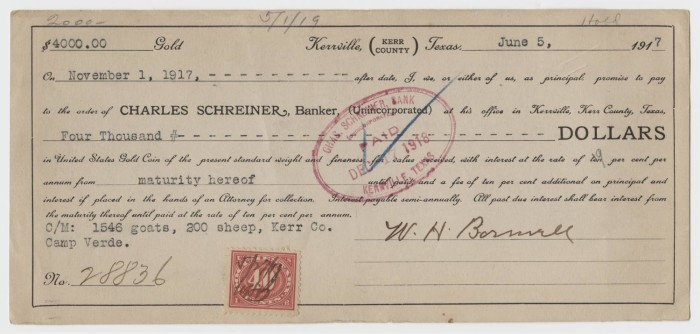 2000— 5/1/19 Hold
$4000.00 Gold Kerrville, (KERR COUNTY) Texas. June 5, 1917
On November 1, 1917, - - - - - - - - - - - after date, I, we, or either of us, as principal, promise to pay
to the order of CHARLES SCHREINER, Banker, (Unincorporated) at his office in Kerrville, Kerr County, Texas,
Four Thousand #- - - - - - - - - - - - - - - - - - - - - - - - DOLLARS
in United States Gold Coin of the present standard weight and fineness for value received, with interest at the rate of ten per cent per
annum from maturity hereof until paid and a fee of ten per cent additional on principal and
interest if placed in the hands of an Attorney for collection. Interest payable semi-annually. All past due interest shall bear interest from
the maturity thereof until paid at the rate of ten per cent per annum.
C/M: 1546 goats, 200 sheep, Kerr Co.
Camp Verde.
No. 28836
W. H. Bonnell
CHAS SCHREINER BANK
PAID
DEC 1918
KERRVILLE TEXAS